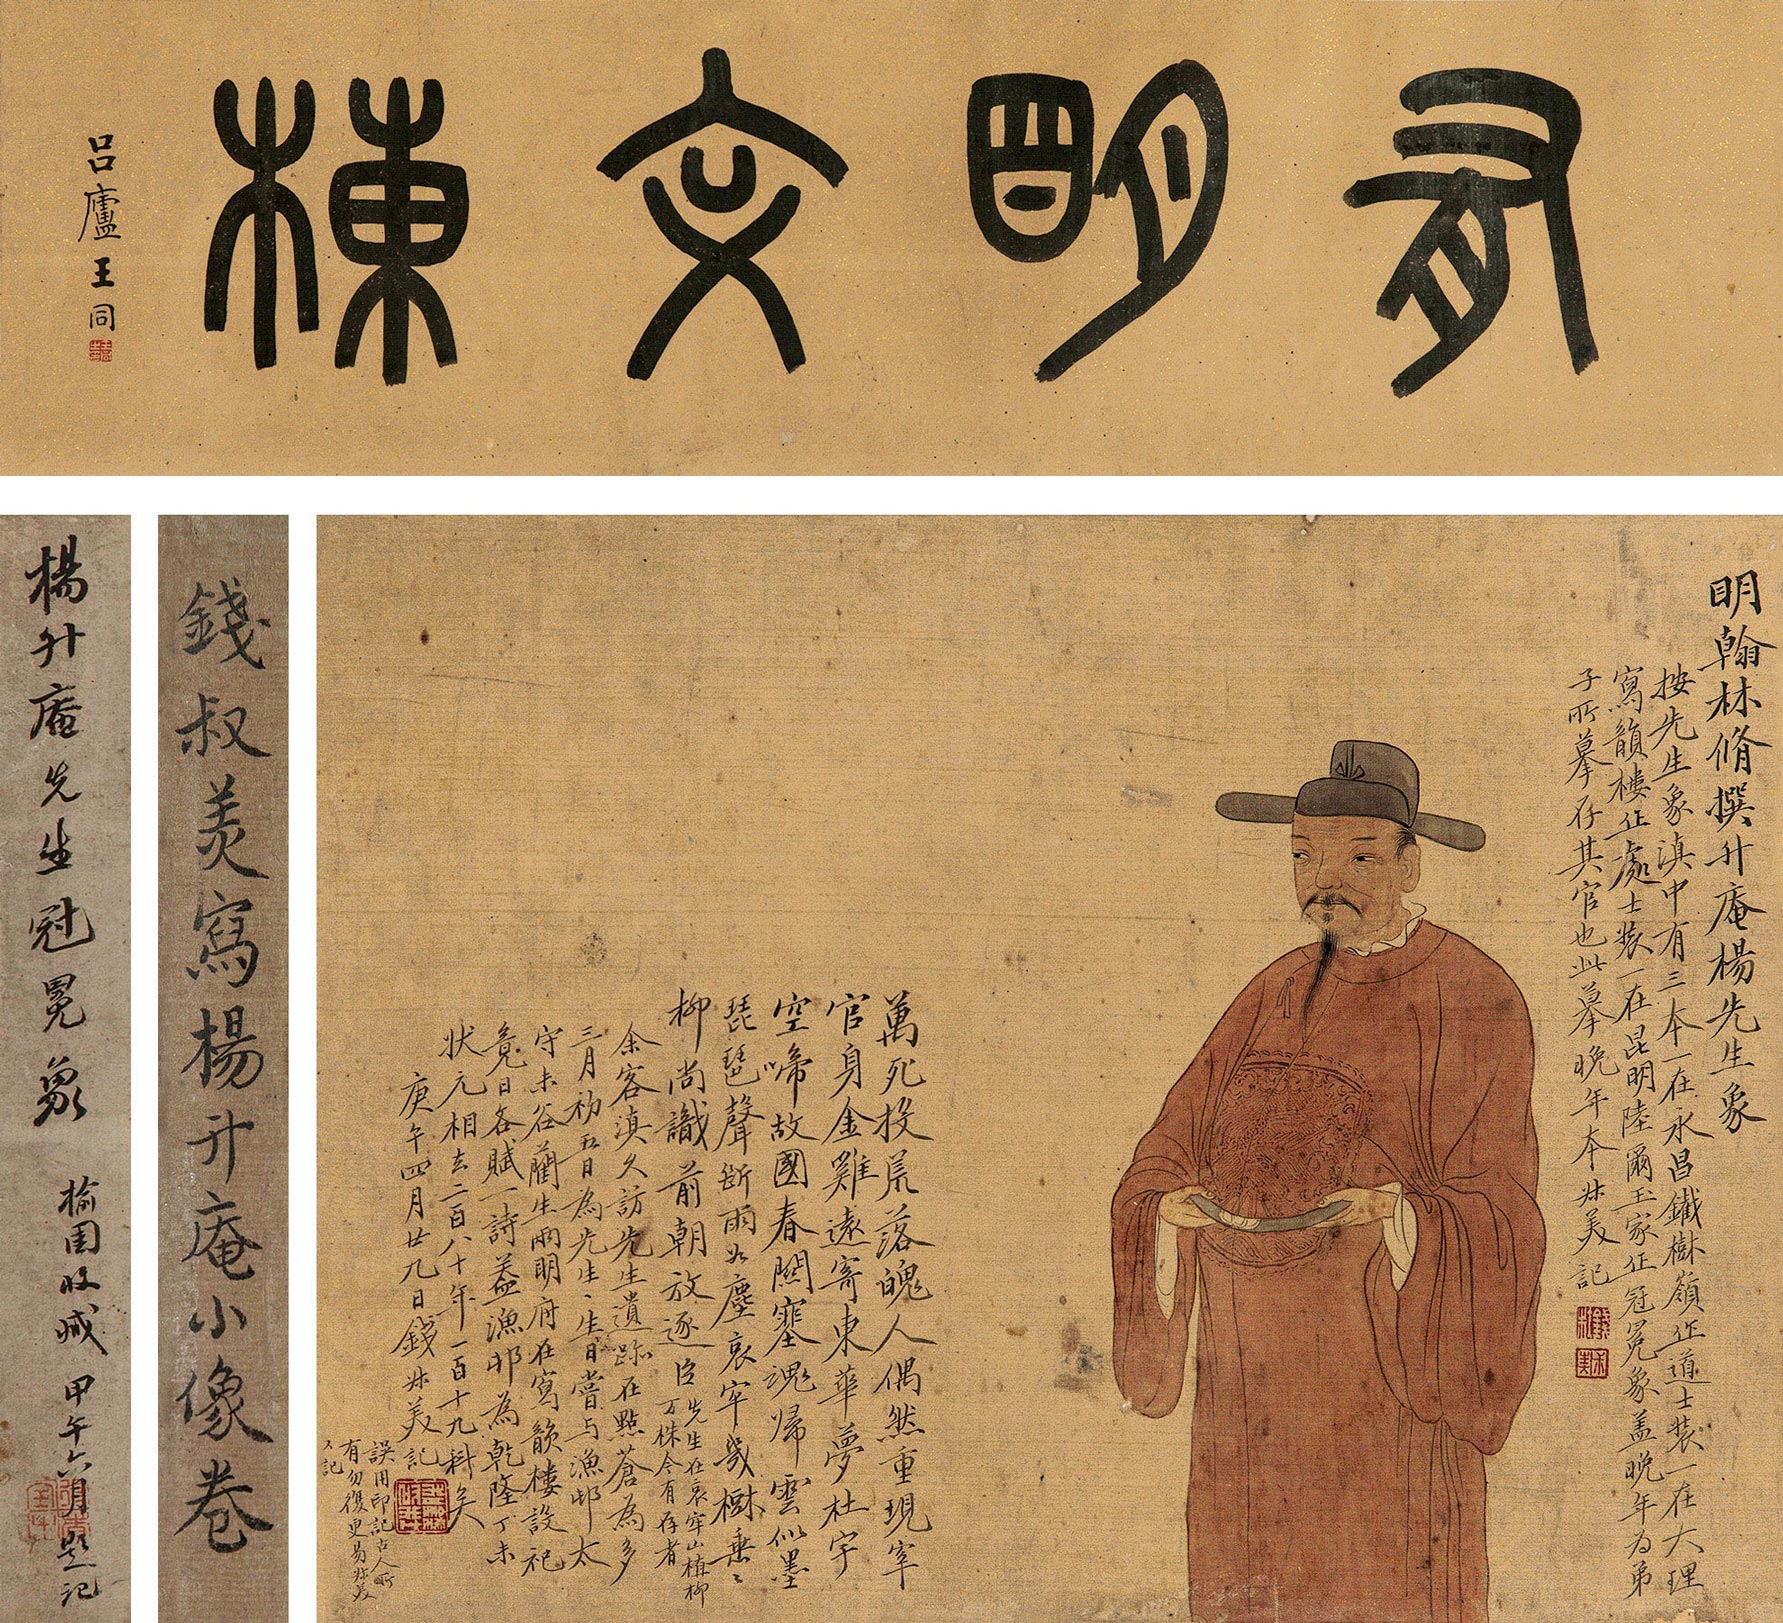 有明文棟
呂廬王同
明翰林脩撰升庵楊先生象
按先生象滇中有三本一在永昌鐵樹嶺作道士裝一在大理
寫韻樓作處士裝一在昆明陸爾玉家作冠冕象蓋晚年為弟
子所摹存其官也此摹晚年本尗美記
萬死投荒落魄人偶然重現宰
官身金雞遠寄東華夢杜宇
空啼故國春關塞魂歸雲似墨
琵琶聲斷雨如塵哀牢幾樹垂垂
柳尚識前朝放逐臣
先生在哀牢山植柳
万株今有存者
余客滇久訪先生遺跡在點蒼為多
三月初五日為先生生日嘗与漁邨太
守未谷蘭生兩明府在寫韻樓設祀
竟日各賦一詩蓋漁邨為乾隆丁未
狀元相去二百八十年一百十九科矣
庚午四月廿九日錢尗美記
誤用印記古人所
有勿復更易尗美
又記
錢叔美寫楊升庵小像卷
楊升庵先生冠冕象
榆園收藏 甲午六月題記